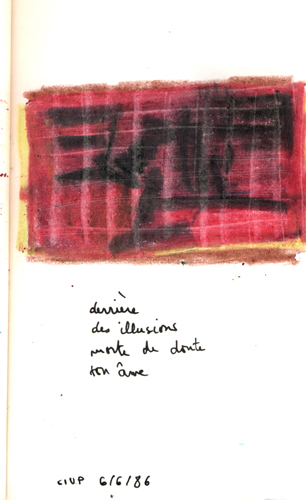 derrière
des illusions
morte de doute
ton âme
CIUP 6/6/86